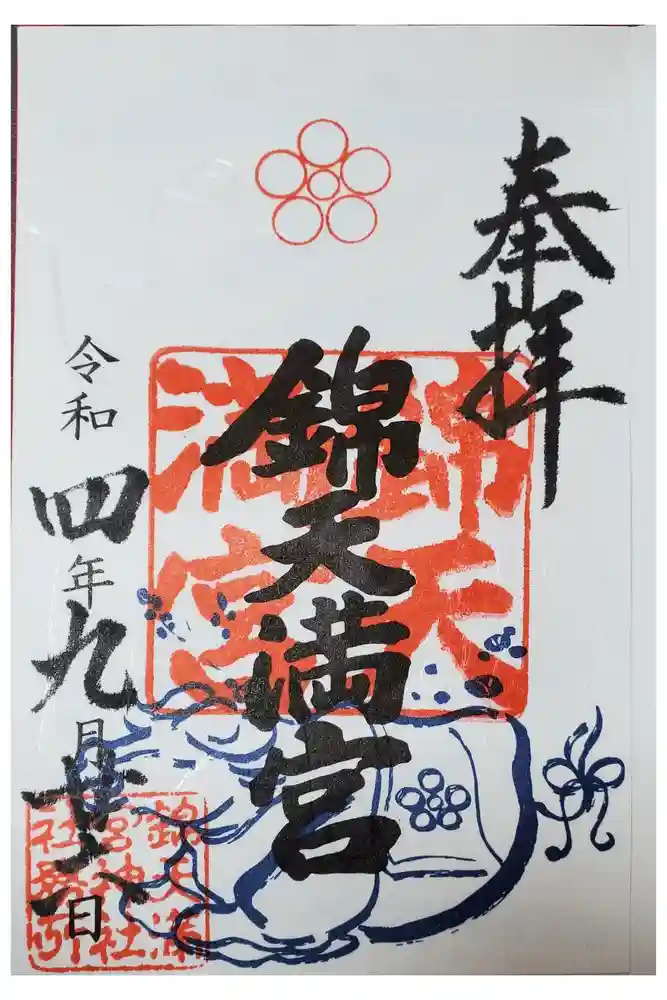 奉拝
錦天満宮
錦天
満宮
令和四年九月廿日
錦天滿
宮神社
社務所